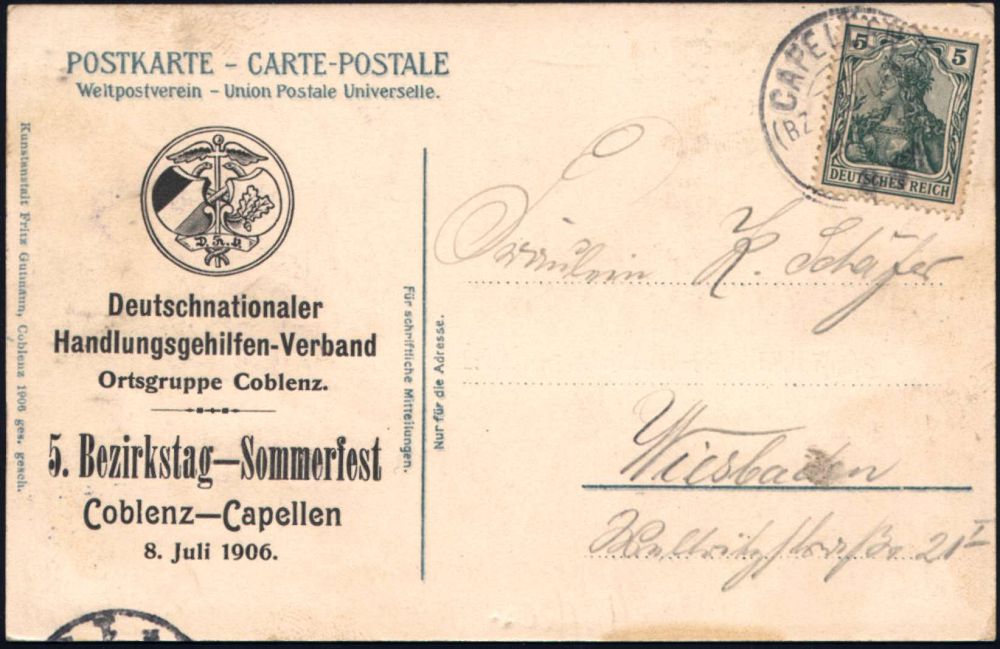 POSTKARTE – CARTE-POSTALE
Weltpostverein – Union Postale Universelle.
Kunstanstalt Fritz Gutmann, Coblenz 1906 ges. gesch.
D.H.V.
Deutschnationaler
Handlungsgehilfen-Verband
Ortsgruppe Coblenz.
5. Bezirkstag—Sommerfest
Coblenz—Capellen
8. Juli 1906.
Für schriftliche Mitteilungen.
Nur für die Adresse.
CAPELLEN
(Bz
5 5
DEUTSCHES REICH
Fräulein K. Schäfer
Wiesbaden
Wellritzstraße 21 I